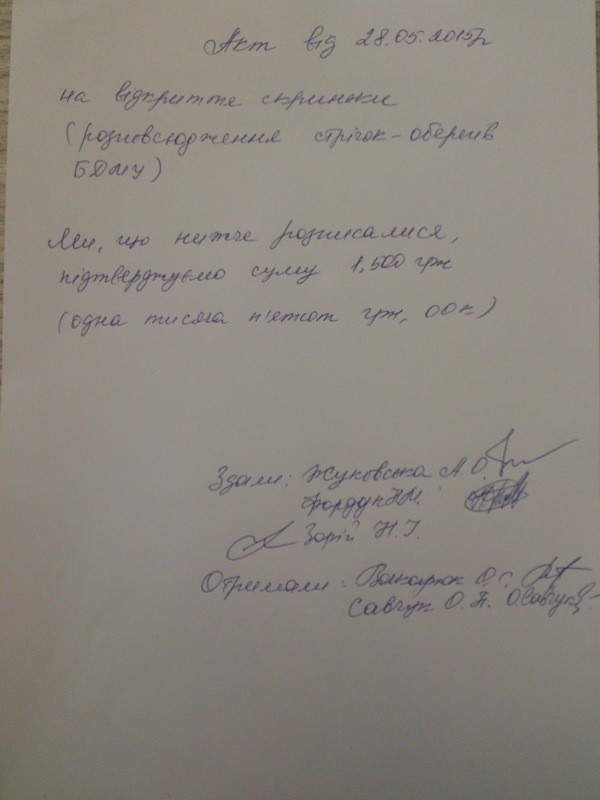 Акт від 28.05.2015р
на відкриття скриньки
(розповсюдження стрічок-оберегів
БДМУ)
Ми, що нижче розписалися,
підтверджуємо суму 1,500 грн
(одна тисяча п'ятсот грн, 00к)
Здали: Жуковська А.О.
Н.М.
Зорій Н.І.
Отримали: О.Г.
Савчук О.П. О.Савчук